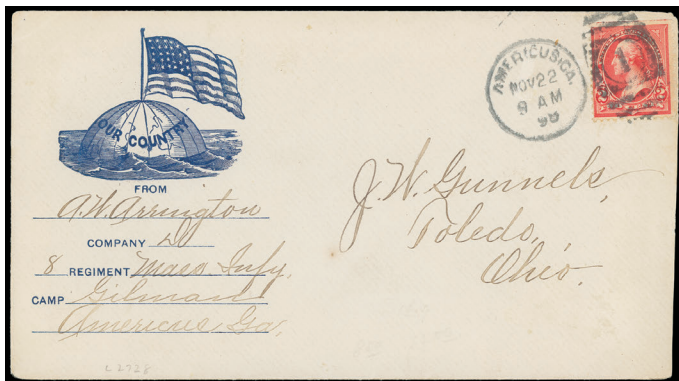 OUR COUNTRY
FROM
A. W. Arrington
COMPANY D
8 REGIMENT Mass. Infy.
CAMP Gilman
Americus, Ga.
AMERICUS, GA.
NOV 22
9 AM
98
1
2 2
J. W. Gunnels,
Toledo,
Ohio.
L 2728